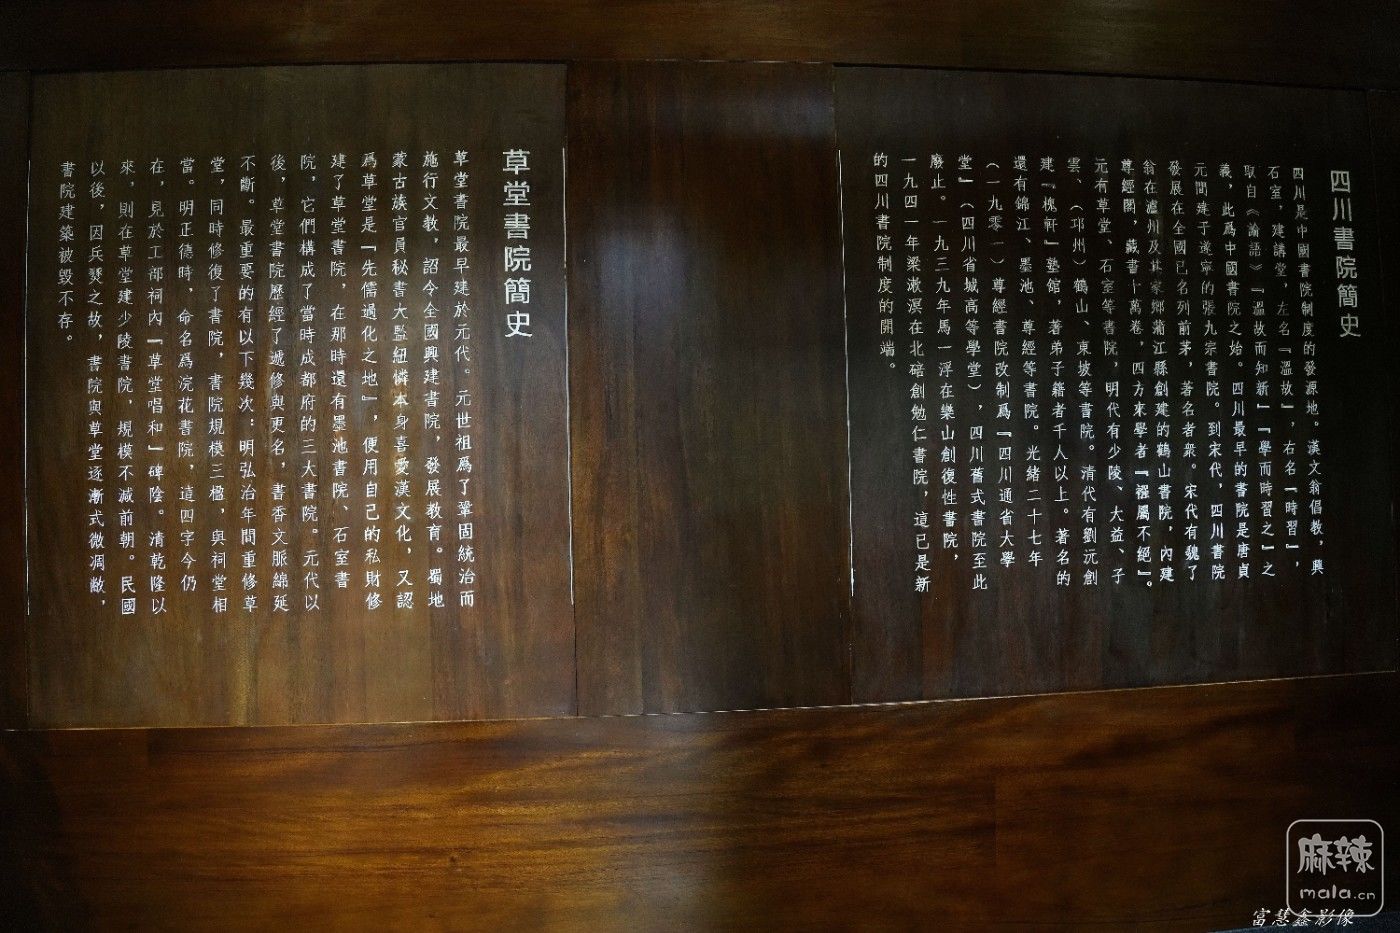 四川書院簡史
四川是中國書院制度的發源地。漢文翁倡教，興
石室，建講堂，左名『溫故』，右名『時習』，
取自《論語》『溫故而知新』『學而時習之』之
義，此爲中國書院之始。四川最早的書院是唐貞
元間建于遂寧的張九宗書院。到宋代，四川書院
發展在全國已名列前茅，著名者衆。宋代有魏了
翁在瀘州及其家鄉蒲江縣創建的鶴山書院，內建
尊經閣，藏書十萬卷，四方來學者『襁屬不絕』。
元有草堂、石室等書院，明代有少陵、大益、子
雲、（邛州）鶴山、東坡等書院。清代有劉沅創
建『槐軒』塾館，著弟子籍者千人以上。著名的
還有錦江、墨池、尊經等書院。光緒二十七年
（一九〇一）尊經書院改制爲『四川通省大學
堂』（四川省城高等學堂），四川舊式書院至此
廢止。一九三九年馬一浮在樂山創復性書院，
一九四一年梁漱溟在北碚創勉仁書院，這已是新
的四川書院制度的開端。
草堂書院簡史
草堂書院最早建於元代。元世祖爲了鞏固統治而
施行文教，詔令全國興建書院，發展教育。蜀地
蒙古族官員秘書大監紐憐本身喜愛漢文化，又認
爲草堂是『先儒過化之地』，便用自己的私財修
建了草堂書院，在那時還有墨池書院、石室書
院，它們構成了當時成都府的三大書院。元代以
後，草堂書院歷經了遞修與更名，書香文脈綿延
不斷。最重要的有以下幾次：明弘治年間重修草
堂，同時修復了書院，書院規模三楹，與祠堂相
當。明正德時，命名爲浣花書院，這四字今仍
在，見於工部祠內『草堂唱和』碑陰。清乾隆以
來，則在草堂建少陵書院，規模不減前朝。民國
以後，因兵燹之故，書院與草堂逐漸式微凋敝，
書院建築被毀不存。
麻辣
mala.cn
富慧鑫影像